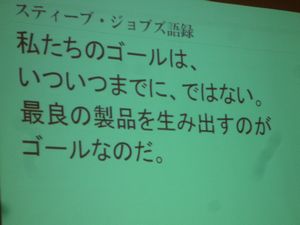 スティーブ・ジョブズ語録
私たちのゴールは、
いついつまでに、ではない。
最良の製品を生み出すのが
ゴールなのだ。